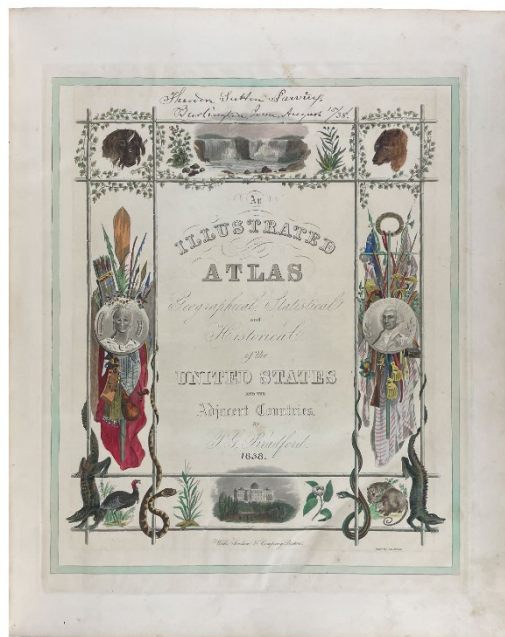 Theodore Sutton Parvin,
Burlington Iowa August 15/38.
An
ILLUSTRATED
ATLAS
Geographical, Statistical
and
Historical
of the
UNITED STATES
AND THE
Adjacent Countries.
BY
T. G. Bradford.
1838.
Weeks Jordan & Company Boston.